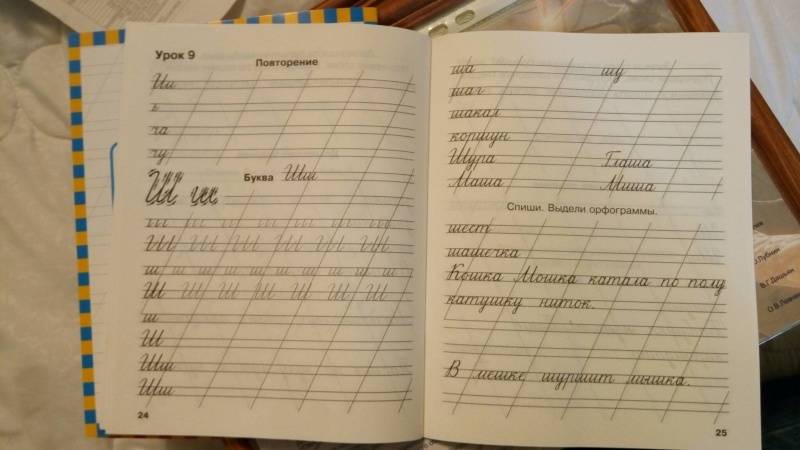 Урок 9
Повторение
Ии
ъ
ча
чу
Буква Шш
Ш ш
ш ш ш ш ш ш ш ш ш
Ш Ш Ш Ш Ш Ш
ш
Ш
Шш
Шш
24
ша шу
шаг
шакал
коршун
Шура Паша
Маша Миша
Спиши. Выдели орфограммы.
шест
шашечка
Кошка Мошка катала по полу
катушку ниток.
В мешке шуршит мышка.
25
О.Лубнин
В.Г.Дацьян